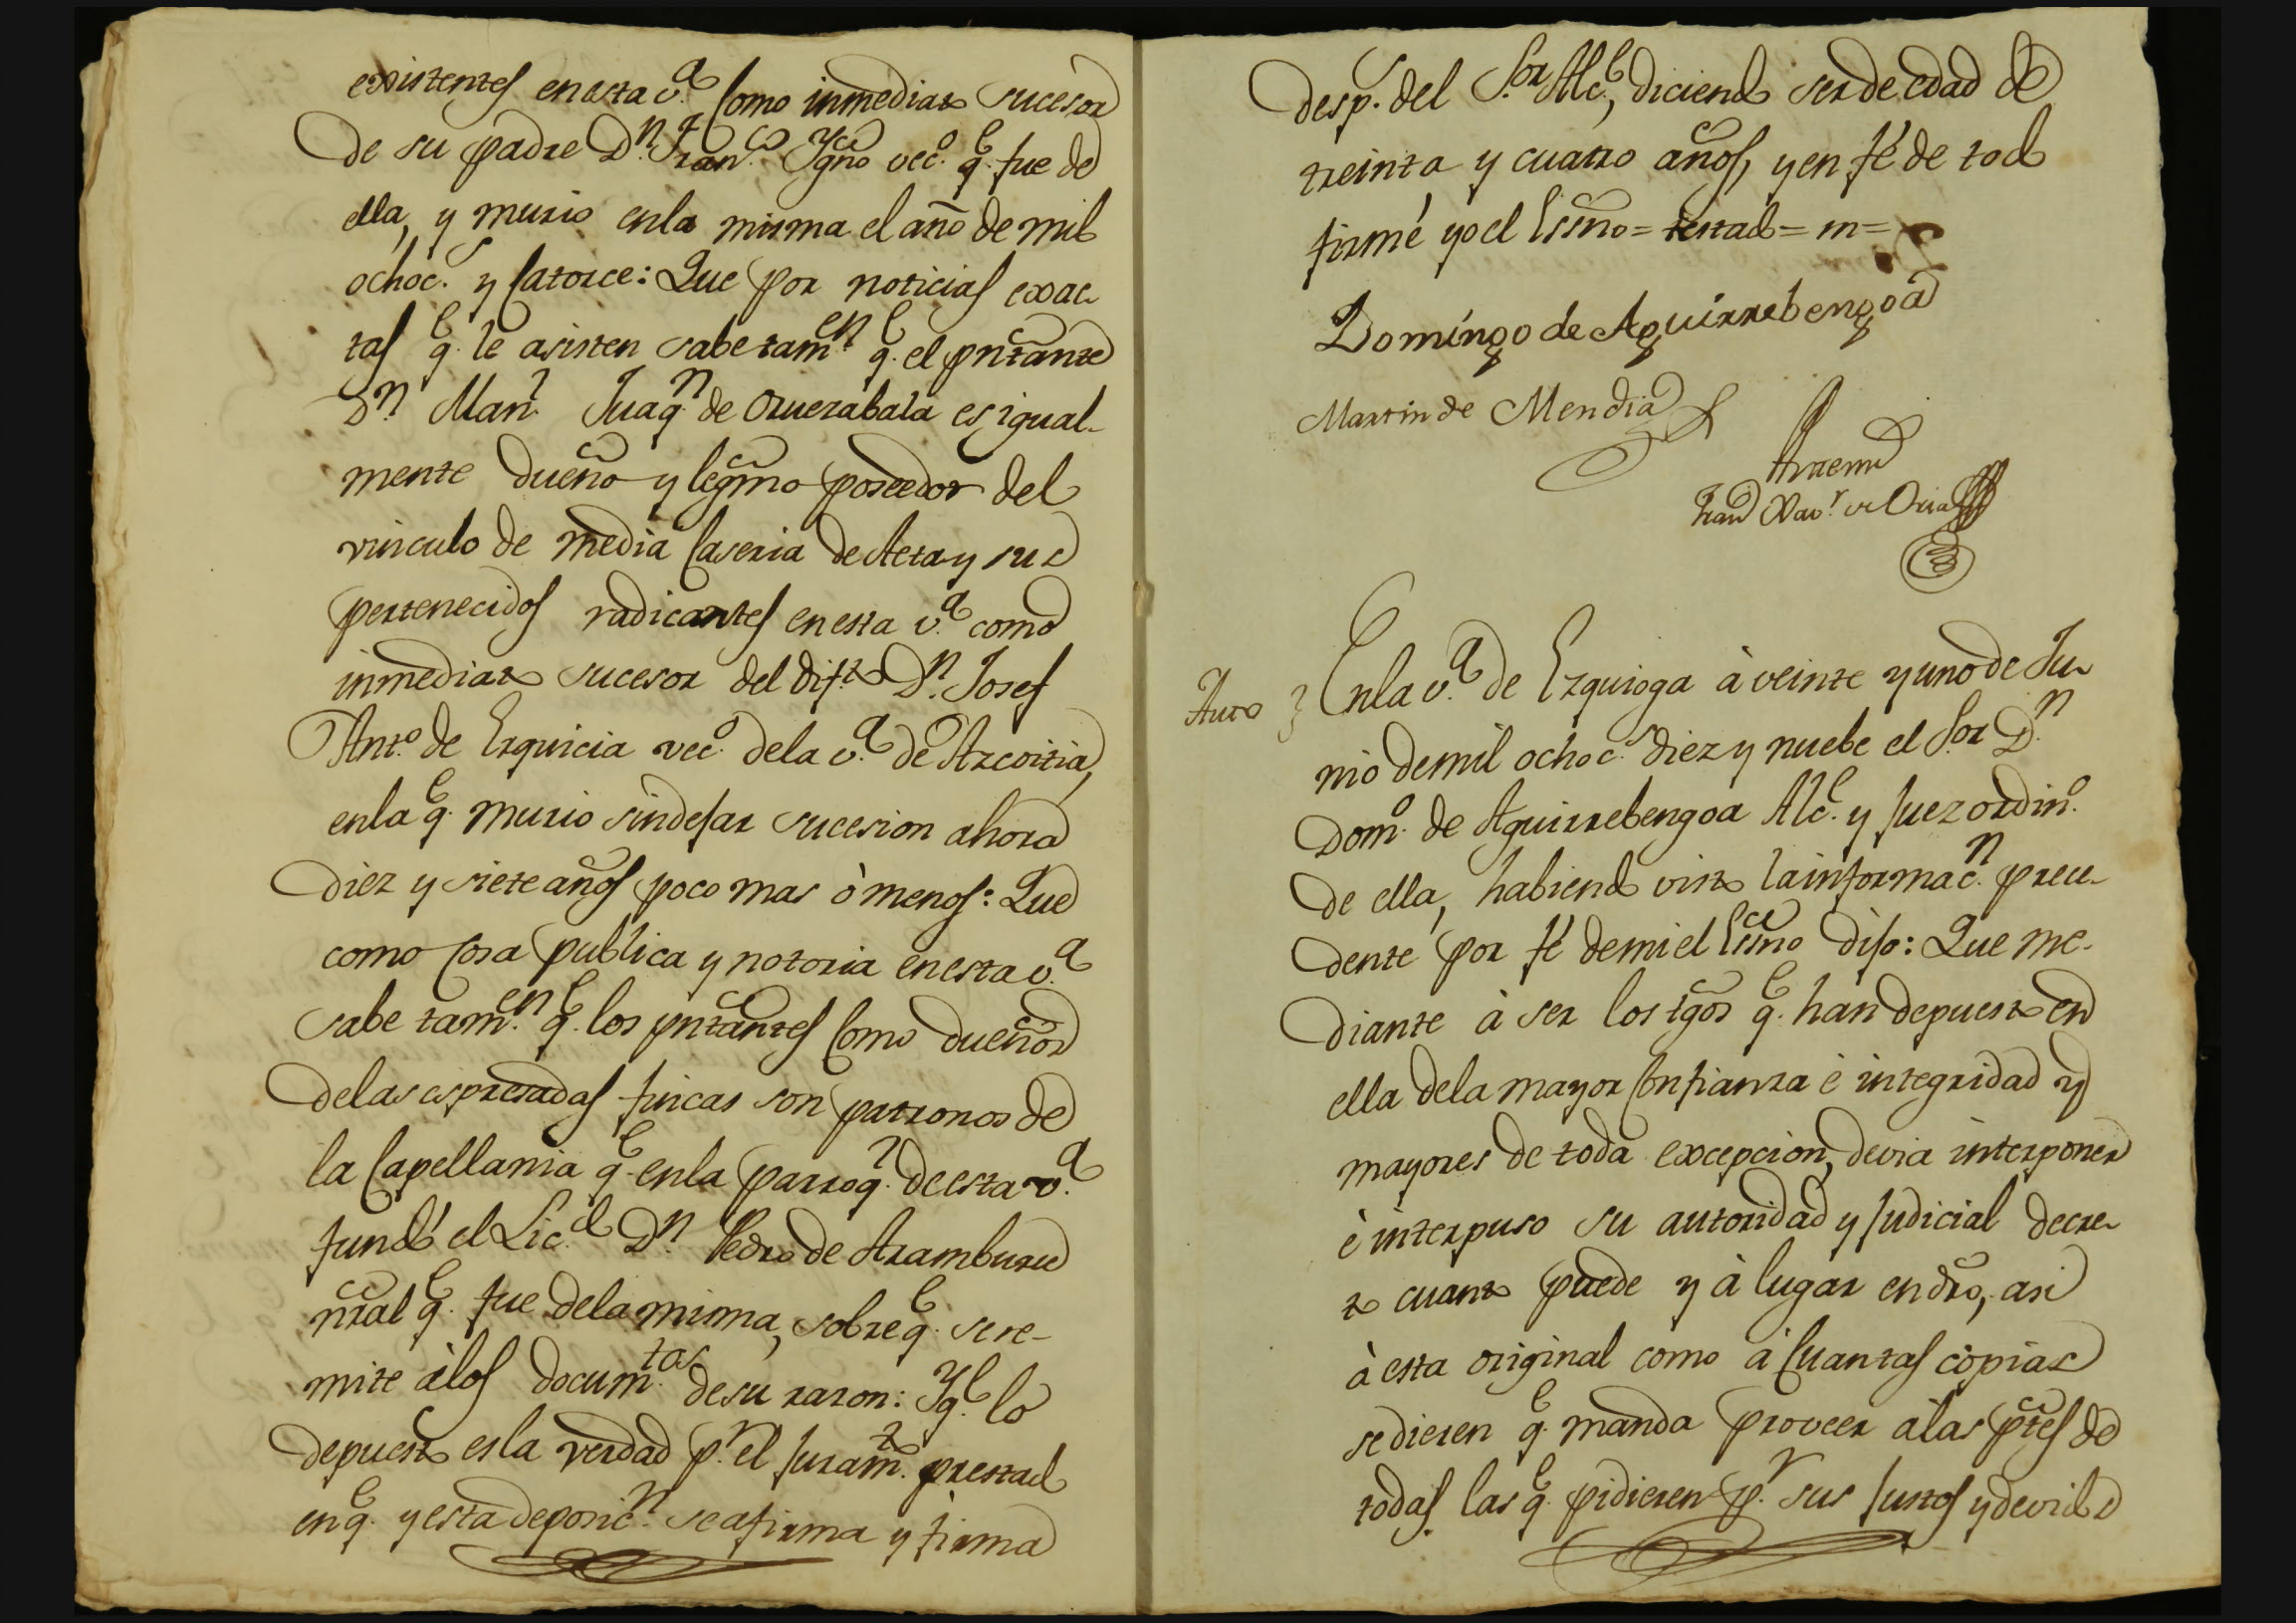 existentes en esta v.ª como inmediato sucesor
de su padre D.n Fran.co Ygno vec.º q.e fue de
ella, y murio en la misma el año de mil
ochoc.s y catorce: Que por noticias exac-
tas q.e le asisten sabe tam.en q.e el pntante
D.n Man.l Juaq.n de Oruezabala es igual-
mente dueño y legmo poseedor del
vinculo de media Caseria de Aeta y sus
pertenecidos radicantes en esta v.ª como
inmediato sucesor del dif.to D.n Josef
Ant.º de Ezquicia vec.º de la v.ª de Azcoitia,
en la q.e murio sin dejar sucesion ahora
diez y siete años poco mas ò menos: Que
como cosa publica y notoria en esta v.ª
sabe tam.en q.e los pntantes como dueños
de las espresadas fincas son patronos de
la Capellania q.e en la parroq.l de esta v.ª
fundó el Lic.do D.n Pedro de Aramburu
nral q.e fue de la misma, sobre q.e se re-
mite à los docum.tos de su razon: Y q.e lo
depuesto es la verdad p.r el juram.to prestado
en q.e y esta deposic.n se afirma y firma
desp.s del S.or Alc.e, diciendo ser de edad de
treinta y cuatro años, y en fé de todo
firmé yo el Essno = testado = m =
Domingo de Aguirrebengoa
Martin de Mendia
Antemi
Fran.co Xav.r de Oria
Auto } En la v.ª de Ezquioga à veinte y uno de Ju-
nio de mil ochoc.s diez y nuebe el S.or D.n
Dom.º de Aguirrebengoa Alc.e y Juez ordin.º
de ella, habiendo visto la informac.n prece-
dente por fé de mi el Essno dijo: Que me-
diante à ser los tgos q.e han depuesto en
ella de la mayor confianza è integridad y
mayores de toda excepcion, devia interponer
è interpuso su autoridad y judicial decre-
to cuanto puede y à lugar en dro, asi
à esta original como à cuantas copias
se dieren q.e manda proveer à las ptes de
todas las q.e pidieren p.r sus justos y devidos